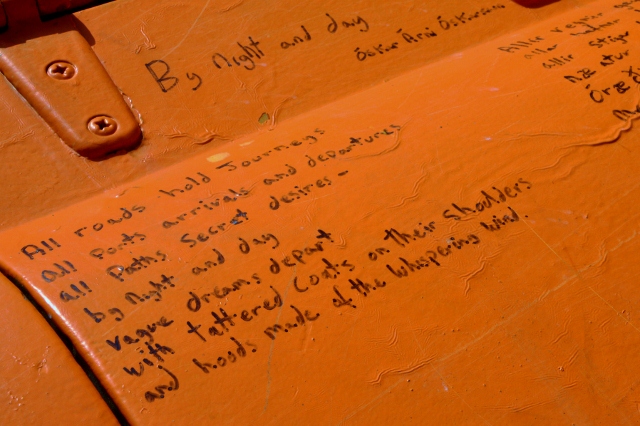 By Night and day
Óskar Árni Óskarsson
All roads hold Journeys
all Ports arrivals and departures
all Paths Secret desires -
by Night and day
vague dreams depart
with tattered Coats on their Shoulders
and hoods made of the whispering wind.
Allir vegir
allar
allir Stígar